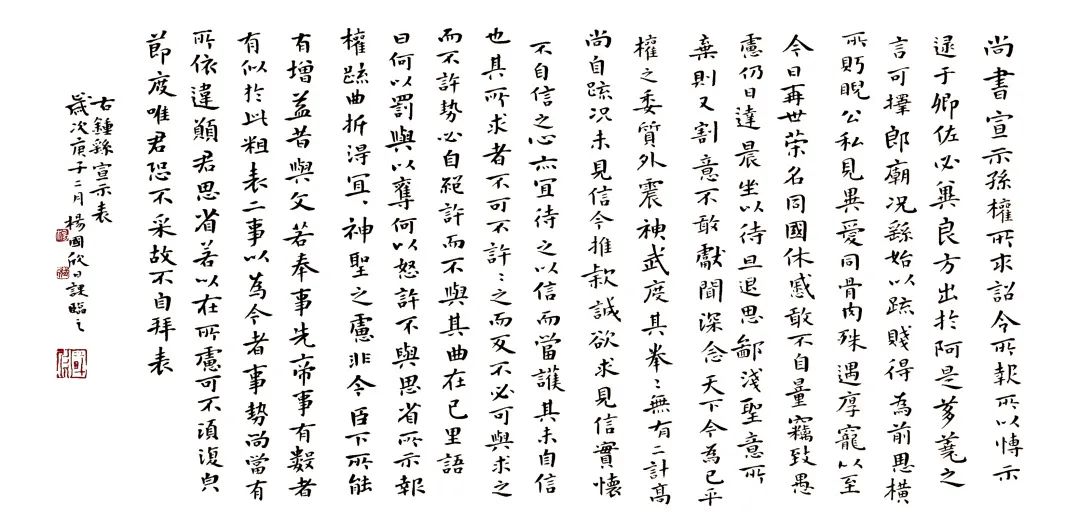 尚書宣示孫權所求詔令所報所以博示
逮于卿佐必冀良方出於阿是芻蕘之
言可擇郎廟况繇始以疏賤得為前恩橫
所眄睨公私見異愛同骨肉殊遇厚寵以至
今日再世榮名同國休慼敢不自量竊致愚
慮仍日達晨坐以待旦退思鄙淺聖意所
棄則又割意不敢獻聞深念天下今為已平
權之委質外震神武度其拳〻無有二計高
尚自疏况未見信今推款誠欲求見信實懷
不自信之心亦宜待之以信而當護其未自信
也其所求者不可不許〻之而反不必可與求之
而不許勢必自絕許而不與其曲在己里語
曰何以罰與以奪何以怒許不與思省所示報
權疏曲折得宜〻神聖之慮非今臣下所能
有增益昔與文若奉事先帝事有數者
有似於此粗表二事以為今者事勢尚當有
所依違願君思省若以在所慮可不須復皃
節度唯君恐不采故不自拜表
右鍾繇宣示表
歲次庚子二月楊國欣日課臨之